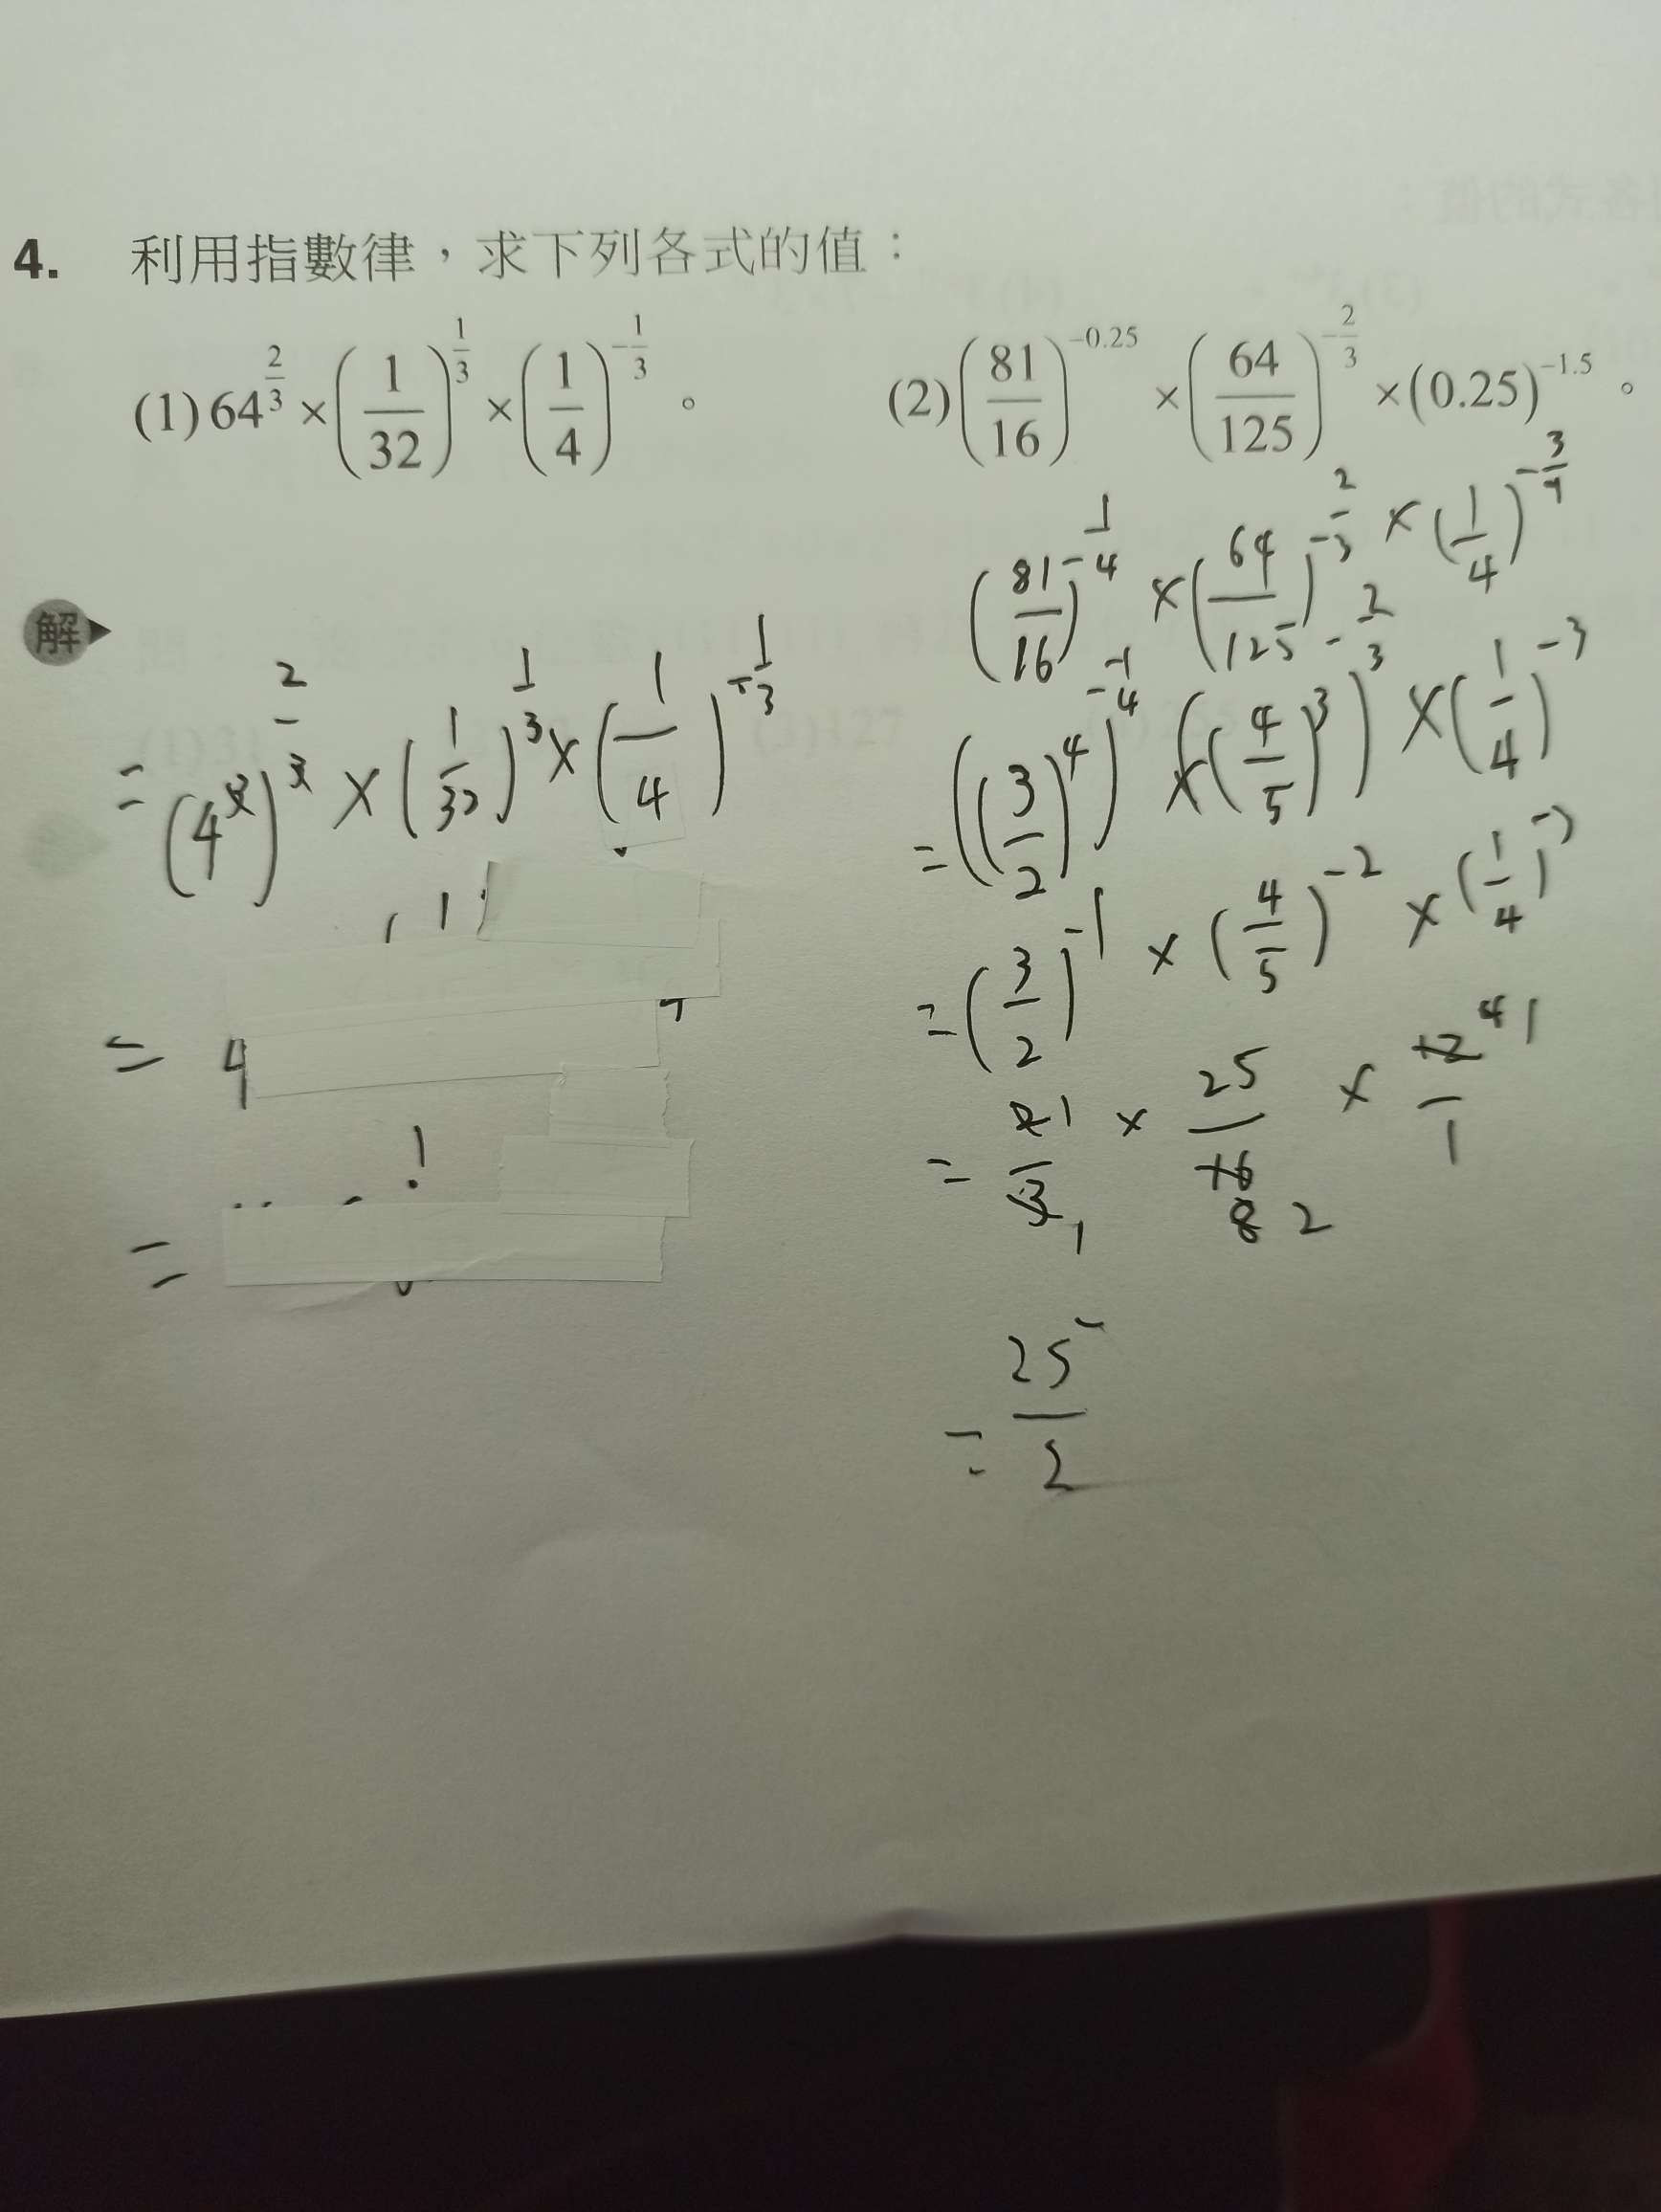 4. 利用指數律，求下列各式的值：
(1) 64^(2/3) × (1/32)^(1/3) × (1/4)^(-1/3) 。
(2) (81/16)^(-0.25) × (64/125)^(-2/3) × (0.25)^(-1.5) 。
解
= (4^3)^(2/3) × (1/32)^(1/3) × (1/4)^(-1/3)
= 4
=
(81/16)^(-1/4) × (64/125)^(-2/3) × (1/4)^(-3/4)
= ((3/2)^4)^(-1/4) × ((4/5)^3)^(-2/3) × (1/4)^(-3)
= (3/2)^(-1) × (4/5)^(-2) × (1/4)^(-3)
= 2/3 × 25/16 × 12/1
= 25/2